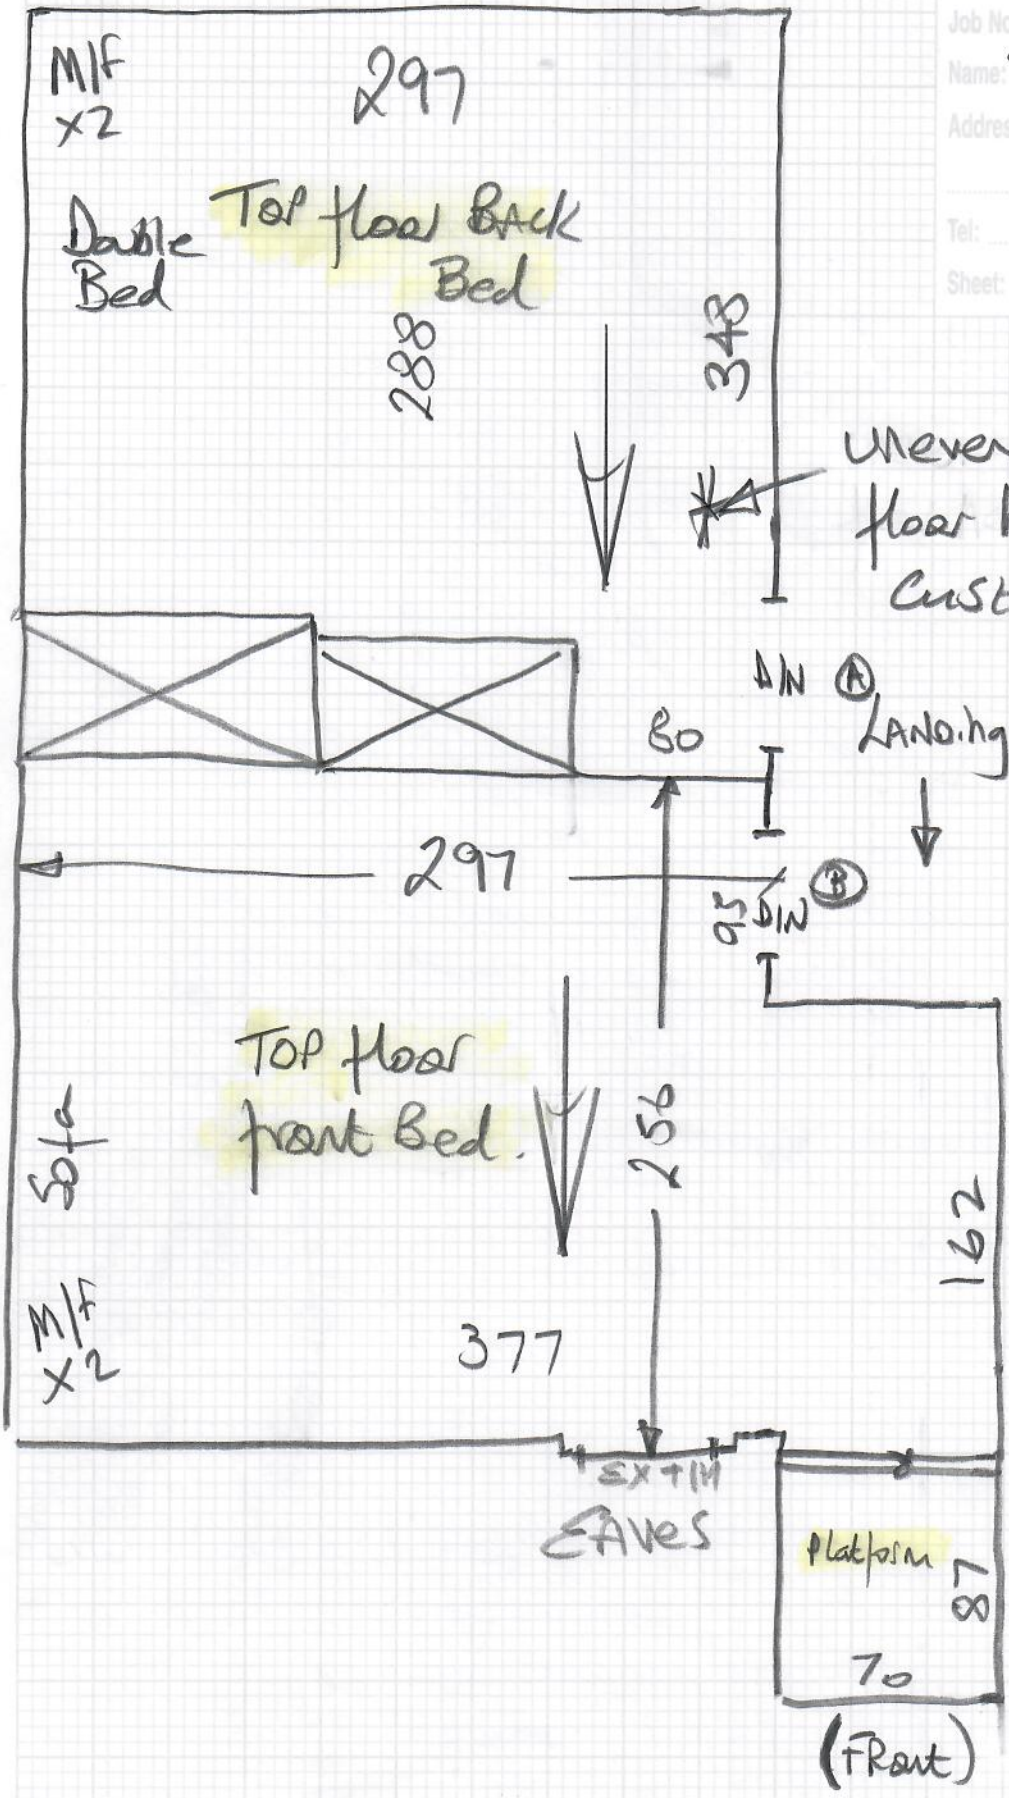 Job No
Name:
Addres
Tel:
Sheet:
M/F
x2
297
Double
Bed
Top floor BACK
Bed
288
348
uneven
floor
Cust
D/N A
LANDING
80
297
95
D/N B
TOP floor
front Bed.
256
Sofa
162
M/F
x2
377
EX + IN
EAVES
Platform
87
70
(FRONT)